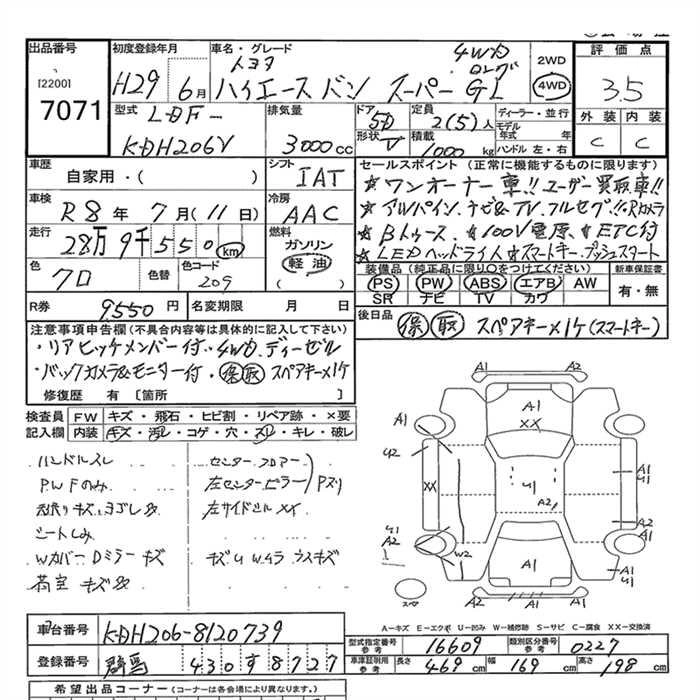 出品番号
[2200]
7071
初度登録年月
H29 6月
車名・グレード
トヨタ
ハイエースバン スーパーGL
4WD
ロング
2WD
4WD
評価点
3.5
外装 内装
C C
型式 LDF-
KDH206V
排気量
3000cc
ドア 5D
形状 V
定員 2(5)人
積載 1000kg
ディーラー・並行
モデル年式 年
ハンドル 左・右
車歴
自家用・( )
シフト
IAT
車検
R8年 7月(11日)
冷房
AAC
走行
28万9千550km
燃料
ガソリン
軽油
( )
色
クロ
色替
色コード
209
R券 9550円
名変期限 月 日
セールスポイント(正常に機能するものに限ります)
★ワンオーナー車!!ユーザー買取車!!
★アルパイン.ナビ&TV.フルセグ!!・Rカメラ
★Bトゥース.★100V電源.★ETC付
★LEDヘッドライト★スマートキー.プッシュスタート
装備品(純正品に限り○をつけてください)
PS PW ABS エアB AW
SR ナビ TV カワ
新車保証書
有・無
後日品
保 取 スペアキー×1ケ(スマートキー)
注意事項申告欄(不具合内容等は具体的に記入して下さい)
・リアヒッチメンバー付・4WD.ディーゼル
・バックカメラ&モニター付・保取 スペアキー×1ケ
修復歴 有〔箇所 〕
検査員記入欄
FW キズ・飛石・ヒビ割・リペア跡・×要
内装 キズ・汚レ・コゲ・穴・スレ・キレ・破レ
ハンドルスレ
PWFのみ
天張りキズ ヨゴレ&
シートしみ
Wカバー Dミラー キズ
荷室 キズ&
センターフロアー
左センターピラー
Pズリ
左サイドシル XX
キズU Wムラ ウスキズ
A1
A1
A1
XX
A1
U2
XX
U1
A2
A1
U1
A2
U1
U1
A2
W2
A1
A1
U1
スペア
A1
A-キズ E-エクボ U-凹み W-補修跡 S-サビ C-腐食 XX-交換済
車台番号
KDH206-8120739
登録番号
群馬 430 す 8727
型式指定番号
参考
16609
類別区分番号
参考
0227
車庫証明用
参考
長さ 469cm 幅 169cm 高さ 198cm
希望出品コーナー(コーナーは各会場により異なります。)